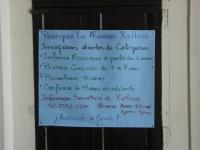 Parroquia La Merced Xalteva
Inscripciones abiertas de Catequesis
• Infancia Misionera a partir de años
• Primera Comunión de 7 a 9 años
• Precatecumenado 10 años
• Confirma de 11 años en adelante
Información: Secretaría de Xalteva
Tel: 2552- Horario 8am-12md
2pm-5pm
¡Acércate a Jesús!